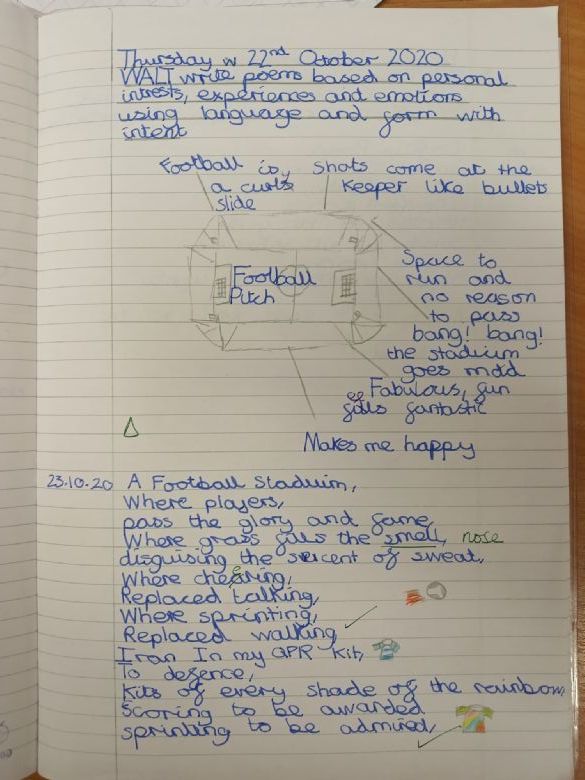 Thursday 22nd October 2020
WALT write poems based on personal
intrests, experiences and emotions
using language and form with
intent
Football is,
a curls
slide
Shots come at the
Keeper like bullets
Football
Pitch
Space to
run and
no reason
to pass
bang! bang!
the stadium
goes mad
Fabulous, fun
fantastic
Makes me happy
23.10.20 A Football Stadium,
Where players,
pass the glory and fame,
Where grass fills the smell, nose
disguising the scent of sweat,
Where cheering,
Replaced talking,
Where sprinting,
Replaced walking,
I ran In my QPR kit,
To defence,
Kits of every shade of the rainbow
Scoring to be awarded
sprinting to be admired,